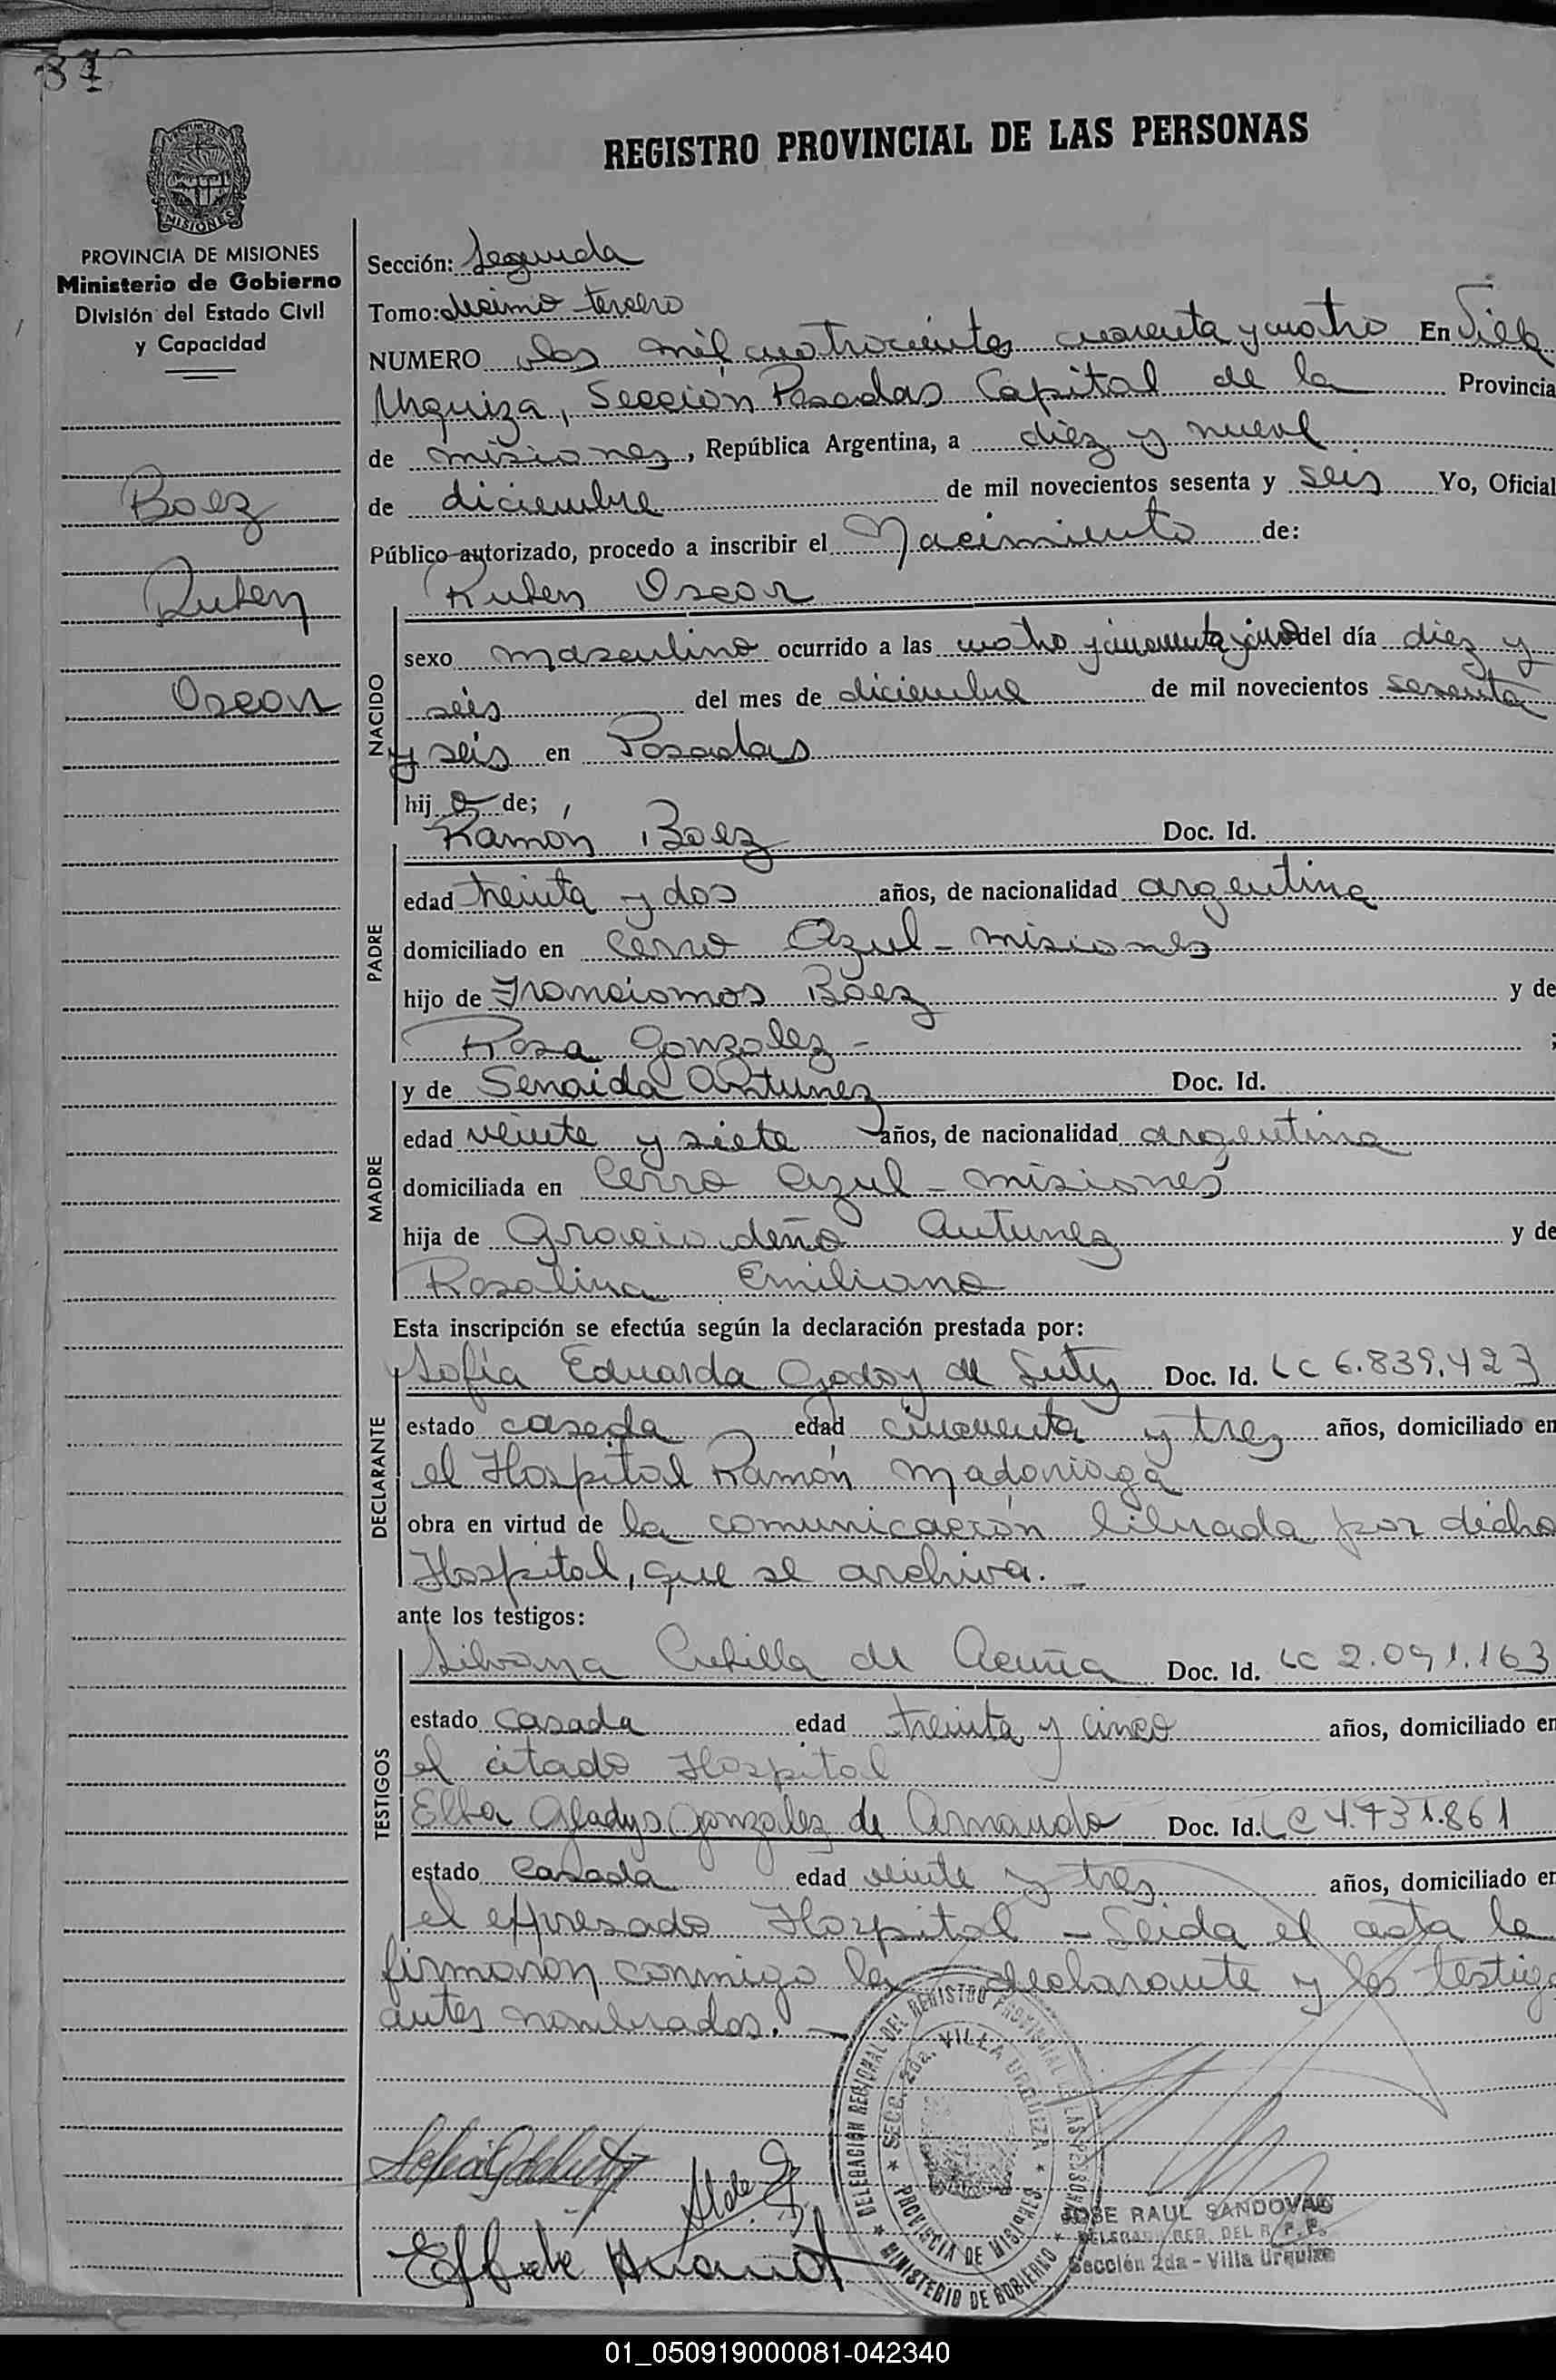 37
REGISTRO PROVINCIAL DE LAS PERSONAS
MISIONES
PROVINCIA DE MISIONES
Ministerio de Gobierno
División del Estado Civil
y Capacidad
Baez
Ruben
Oscar
Sección: Segunda
Tomo: decimo tercero
NUMERO dos mil cuatrocientos cuarenta y cuatro En Villa
Urquiza, Sección Posadas Capital de la Provincia
de misiones, República Argentina, a diez y nueve
de diciembre de mil novecientos sesenta y seis Yo, Oficial
Público autorizado, procedo a inscribir el Nacimiento de:
Ruben Oscar
NACIDO
sexo masculino ocurrido a las cuatro y cincuenta y cinco del día diez y
seis del mes de diciembre de mil novecientos sesenta
y seis en Posadas
hijo de;
Ramón Baez Doc. Id.
PADRE
edad treinta y dos años, de nacionalidad argentina
domiciliado en Cerro Azul - misiones
hijo de Baez y de
Rosa Gonzalez - ;
MADRE
y de Senaida Antunez Doc. Id.
edad veinte y siete años, de nacionalidad argentina
domiciliada en Cerro Azul - misiones
hija de Antunez y de
Rosalina Emiliana
Esta inscripción se efectúa según la declaración prestada por:
DECLARANTE
Sofía Eduarda Godoy de Doc. Id. LC 6.839.423
estado casada edad cincuenta y tres años, domiciliado en
el Hospital Ramón Madariaga
obra en virtud de la comunicación librada por dicho
Hospital, que se archiva. -
ante los testigos:
TESTIGOS
Silvana Cubilla de Acuña Doc. Id. LC 2.091.163
estado casada edad treinta y cinco años, domiciliado en
el citado Hospital
Elba Gladys Gonzalez de Doc. Id. LC 4.731.861
estado Casada edad veinte y tres años, domiciliado en
el expresado Hospital - Leida el acta la
firmaron conmigo la declarante y los testigo
antes nombrados. -
DELEGACIÓN REGIONAL DEL REGISTRO PROVINCIAL DE LAS PERSONAS
SECC. 2da. VILLA URQUIZA
PROVINCIA DE MISIONES
MINISTERIO DE GOBIERNO
JOSE RAUL SANDOVAL
DELEGADO REG. DEL R. P. P.
Sección 2da - Villa Urquiza
01_050919000081-042340